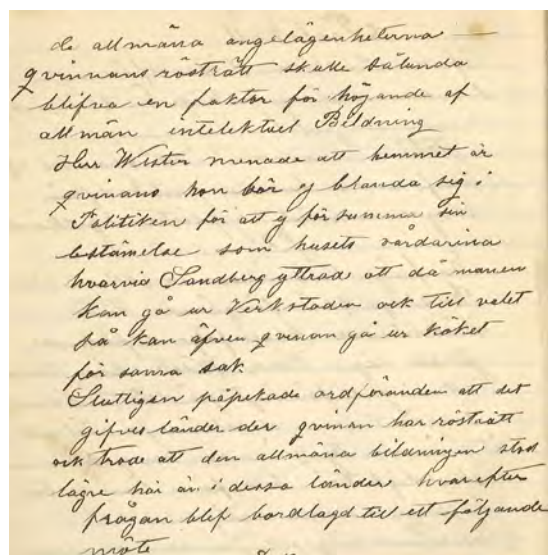 de allmäna angelägenheterna —
qvinnans rösträtt skulle sålunda
blifva en faktor för höjande af
allmän intelektuel Bildning
Herr Wister menade att hemmet är
qvinans hon bör ej blanda sig i
Politiken för att ej försumma sin
bestämelse som husets vårdarina
hvarvid Sandberg yttrade att då manen
kan gå ur Verkstaden ock till valet
så kan äfven qvinan gå ur köket
för sama sak
Slutligen påpekade ordföranden att det
gifves länder der qvinan har rösträtt
ock trode att den allmäna bildningen stod
lägre här än i dessa länder hvarefter
frågan blef bordlagd till ett följande
möte